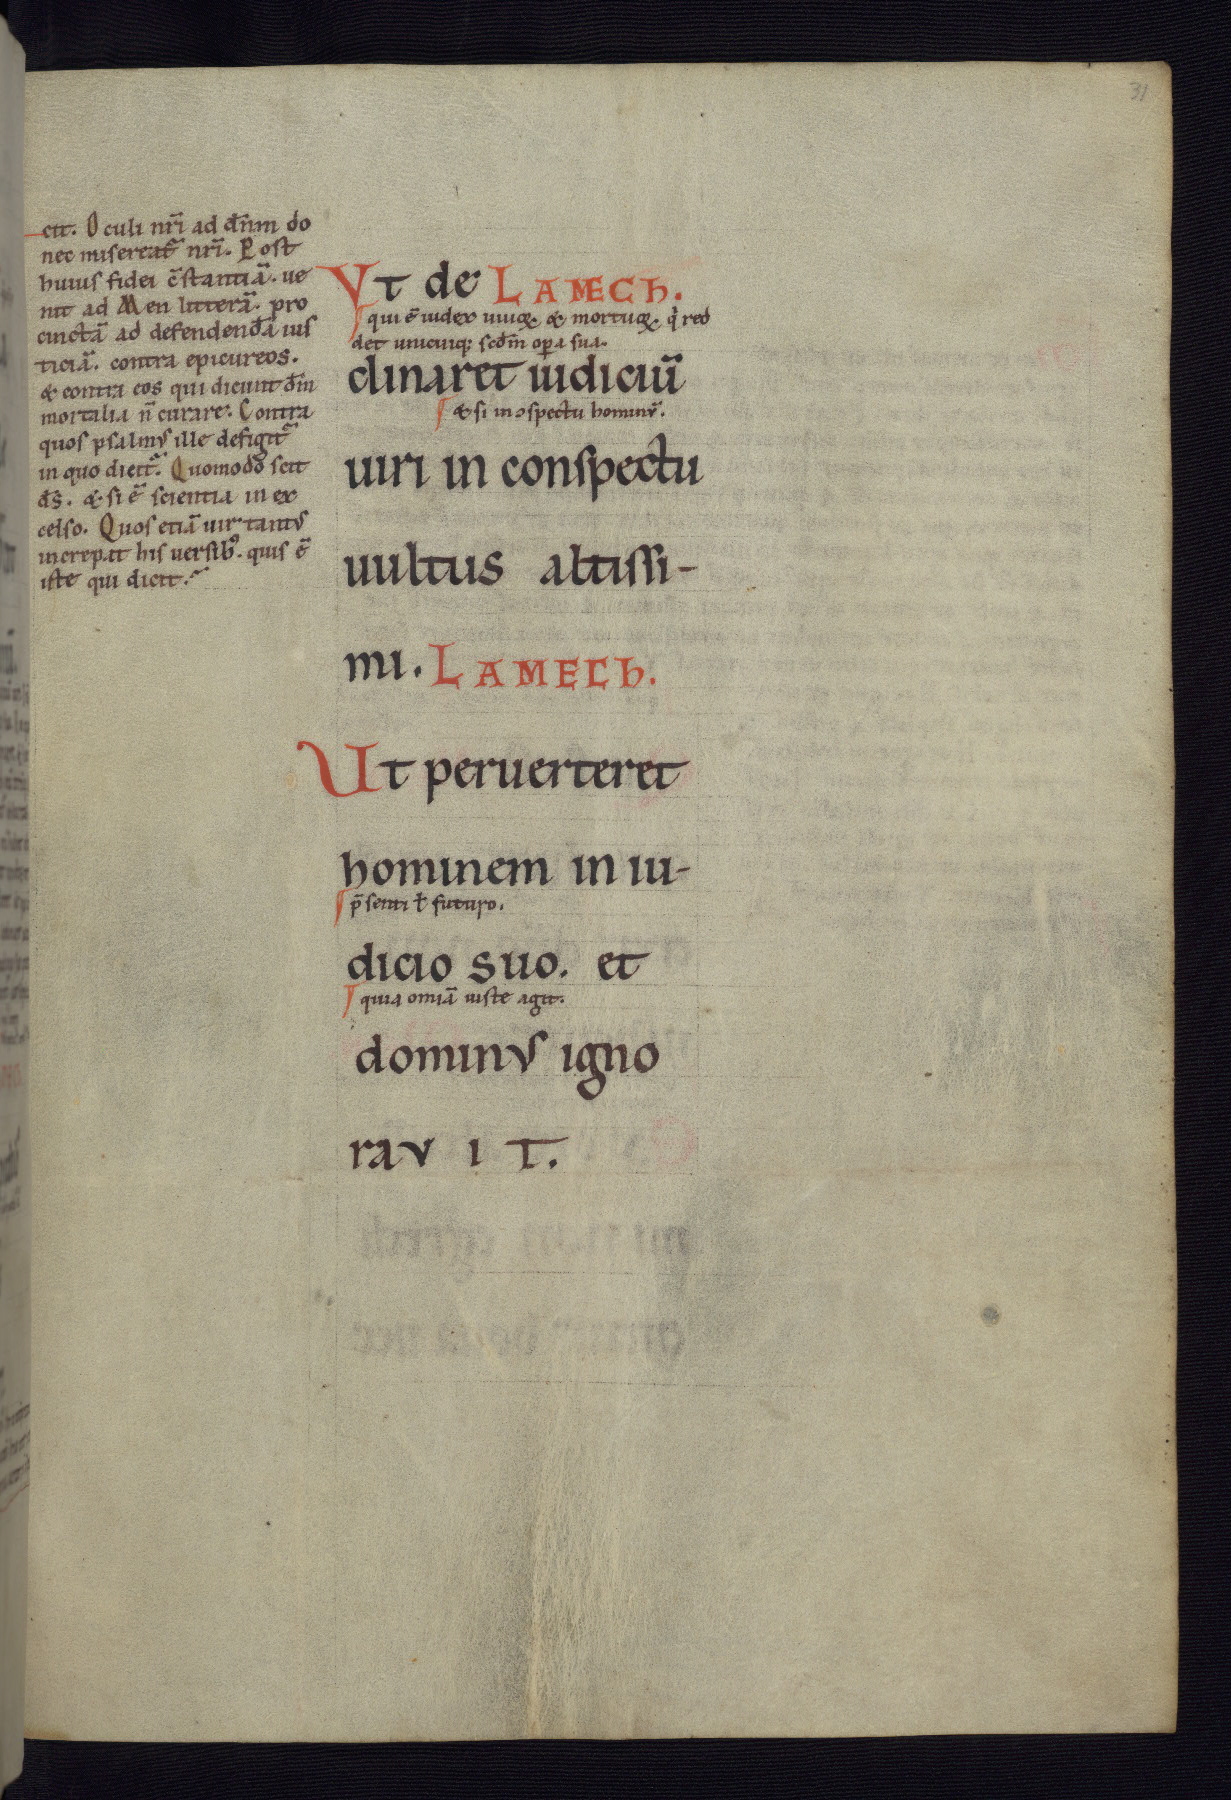 31
cit. Oculi nr̄i ad dn̄m do
nec misereat᷑ nr̄i. Post
huius fidei c̄stantiā. ue
nit ad Men litterā. pro
cinctā ad defendendā ius
ticiā. contra epicureos.
& contra eos qui dicunt dm̄
mortalia n̄ curare. Contra
quos psalmus ille defigit᷑
in quo dicit᷑. Quomodo scit
ds̄. & si ē scientia in ex
celso. Quos etiā uir tantus
increpat his uersib; quis ē
iste qui dicit.
Vt de LAMECh.
qui ē iudex uiuoꝝ & mortuoꝝ. q̇ red
det unicuiq; scdm̄ oꝑa sua.
clinaret iudiciū
& si in ↄspectu hominū.
uiri in conspectu
uultus altissi-
mi. LAMECh.
Ut peruerteret
hominem in iu-
p̄senti ł futuro.
dicio suo. et
quia omīa iuste agit.
dominus igno
rav i t.